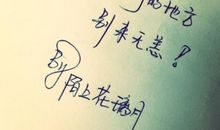 的地方
别来无恙！
陌上花满月